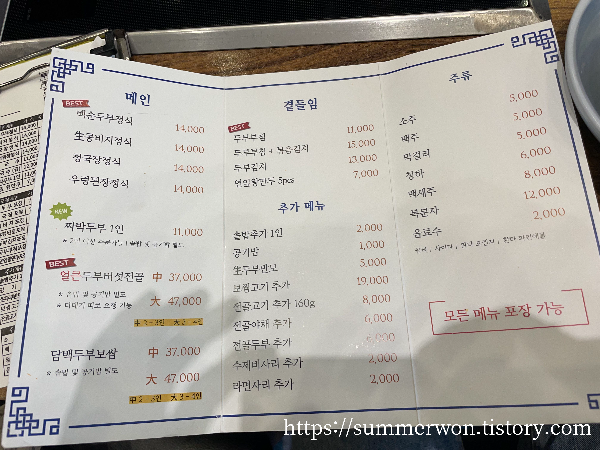 메인
BEST
백순두부정식 14,000
生콩비지정식 14,000
청국장정식 14,000
우렁된장정식 14,000
NEW
찌박두부 1인 11,000
BEST
얼큰두부버섯전골 中 37,000
大 47,000
담백두부보쌈 中 37,000
大 47,000
곁들임
BEST
두부부침 11,000
두부부침 + 볶음김치 15,000
두부김치 13,000
7,000
추가 메뉴
솥밥추가 1인 2,000
공기밥 1,000
生두부반모 5,000
보쌈고기 추가 19,000
전골고기 추가 160g 8,000
전골야채 추가 6,000
전골두부 추가
수제비사리 추가 2,000
라면사리 추가 2,000
주류
소주 5,000
맥주 5,000
막걸리 5,000
청하 6,000
백세주 8,000
복분자 12,000
음료수 2,000
모든 메뉴 포장 가능
https://summerwon.tistory.com